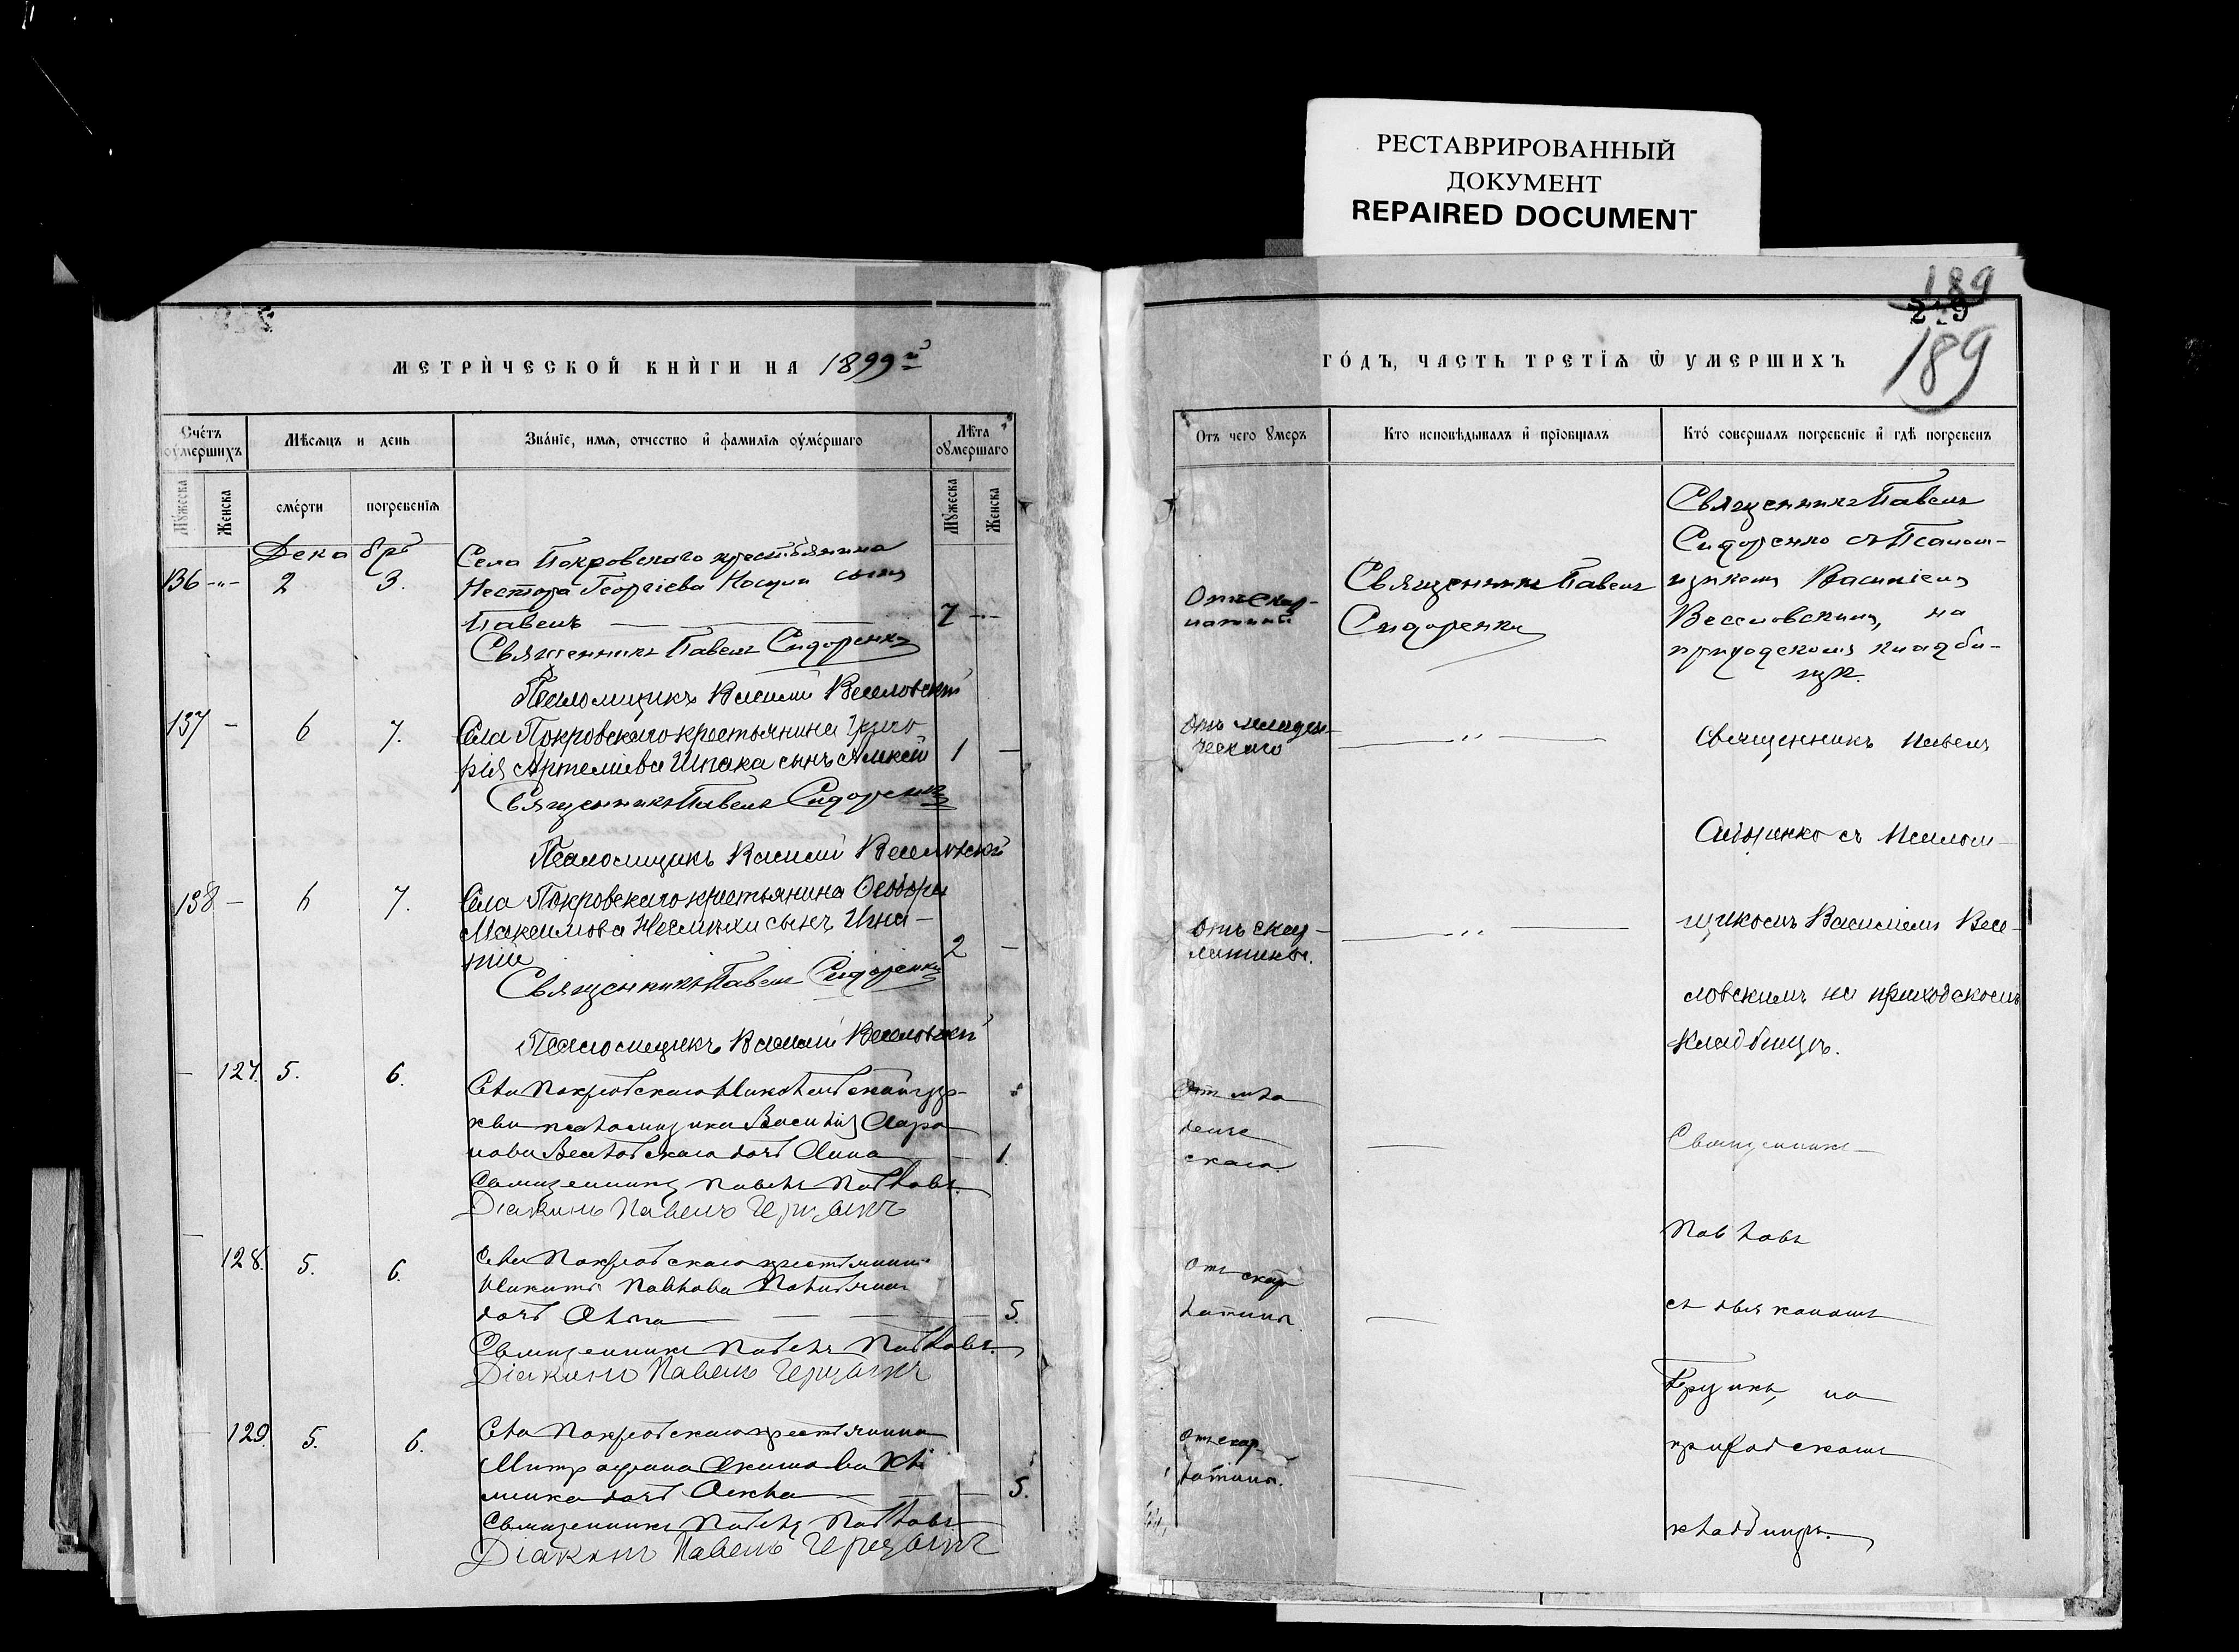 РЕСТАВРИРОВАННЫЙ
ДОКУМЕНТ
REPAIRED DOCUMENT
189
189
МЕТРИЧЕСКОЙ КНИГИ НА 1899й
Счетъ оумершихъ
Мѣсяцъ и день
Званіе, имя, отчество и фамилія оумершаго
Лѣта оумершаго
Мужеска
Женска
смерти
погребенія
Мужеска
Женска
Декабрь
136 -"- 2 3.
Села Покровскаго крестьянина
Нестора Георгіева сынъ
Павелъ — 7 -"-
Священникъ Павелъ Сидоренко
Псаломщикъ Василій Веселовскій
137 - 6 7.
Села Покровскаго крестьянина Григо
рія Артемиева Шпака сынъ Алексій 1 —
Священникъ Павелъ Сидоренко
Псаломщикъ Василій Веселовскій
138 - 6 7.
Села Покровскаго крестьянина Ѳеодора
Максимова сынъ Игна-
тій 2 —
Священникъ Павелъ Сидоренко
Псаломщикъ Василій Веселовскій
— 127. 5. 6.
Села Покровскаго Николаевской цер-
кви псаломщика Василія
Веселовскаго дочь Анна — 1.
Священникъ Павелъ Павловъ
Діаконъ Павелъ
— 128. 5. 6.
Села Покровскаго крестьянина
Никиты Павлова
дочь — 5.
Священникъ Павелъ Павловъ.
Діаконъ Павелъ
— 129. 5. 6.
Села Покровскаго крестьянина
Митрофана Акимова
дочь — 5.
Священникъ Павелъ Павловъ
Діаконъ Павелъ
ГОДЪ, ЧАСТЬ ТРЕТІЯ Ѿ УМЕРШИХЪ
Отъ чего умеръ
Кто исповѣдывалъ и пріобщалъ
Кто совершалъ погребеніе и гдѣ погребенъ
Отъ скар-
латины
Священникъ Павелъ
Сидоренко
Священникъ Павелъ
Сидоренко съ Псалом-
щикомъ Василіемъ
Веселовскимъ, на
приходскомъ кладби-
щѣ.
Отъ младен-
ческаго
— " —
Священникъ Павелъ
Сидоренко съ Псалом-
щикомъ Василіемъ Весе-
ловскимъ на приходскомъ
кладбищѣ.
Отъ скар-
латины.
— " —
Отъ мла
денче
скаго.
—
Священникъ
Павловъ
съ діякономъ
на
приходскомъ
кладбищѣ.
Отъ скар
латины.
—
Отъ скар-
латины.
—